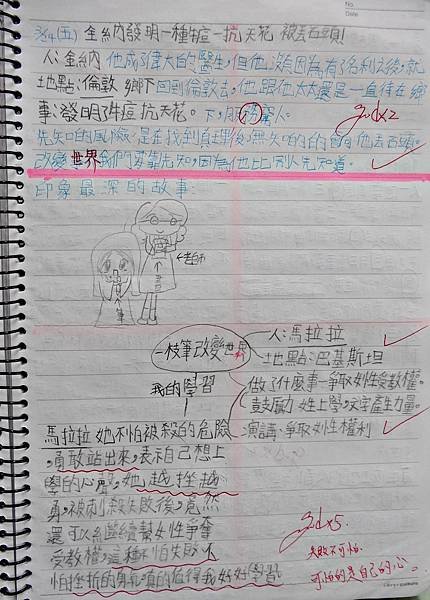 No.
Date
3/4(五) 金納發明一種痘-抗天花 被丟石頭!
人:金納 他成了偉大的醫生,但他沒有因為有了名利之後,就
地點:倫敦 鄉下 回到倫敦去,他跟他太太還是一直待在鄉
事:發明了牛痘抗天花。下,服務窮人。
gd×2
先知的風險是在找到真理後,無知的的會向他丟石頭。
改變世界我們要靠先知,因為他比別人先知道。
印象最深的故事:
←老師
書
筆
一枝筆改變世界
人:馬拉拉
地點:巴基斯坦
做了什麼事-爭取女性受教權。
鼓勵女性上學,文字產生力量。
演講:爭取女性權利
我的學習
馬拉拉她不怕被殺的危險
,勇敢站出來,表示自己想上
學的心聲,她越挫越
勇,被刺殺失敗後,竟然
還可以繼續幫女性爭奪
受教權,這種不怕失敗、不
怕挫折的勇氣,真的值得我好好學習。
gd×5
失敗不可怕.
可怕的是自己的心。